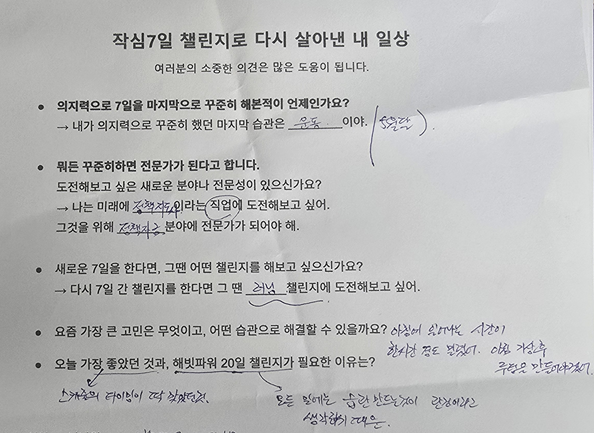 작심7일 챌린지로 다시 살아낸 내 일상
여러분의 소중한 의견은 많은 도움이 됩니다.
• 의지력으로 7일을 마지막으로 꾸준히 해본적이 언제인가요?
→ 내가 의지력으로 꾸준히 했던 마지막 습관은 운동 이야.
• 뭐든 꾸준히하면 전문가가 된다고 합니다.
도전해보고 싶은 새로운 분야나 전문성이 있으신가요?
→ 나는 미래에 이라는 직업에 도전해보고 싶어.
그것을 위해 정책자금 분야에 전문가가 되어야 해.
• 새로운 7일을 한다면, 그땐 어떤 챌린지를 해보고 싶으신가요?
→ 다시 7일 간 챌린지를 한다면 그 땐 러닝 챌린지에 도전해보고 싶어.
• 요즘 가장 큰 고민은 무엇이고, 어떤 습관으로 해결할 수 있을까요? 아침에 일어나는 시간이
한시간 정도 아침 기상 후
루틴을
• 오늘 가장 좋았던 것과, 해빗파워 20일 챌린지가 필요한 이유는?
타이밍이 딱
모든 일에는 습관 만드는것이 관건이라고
생각하기 때문.